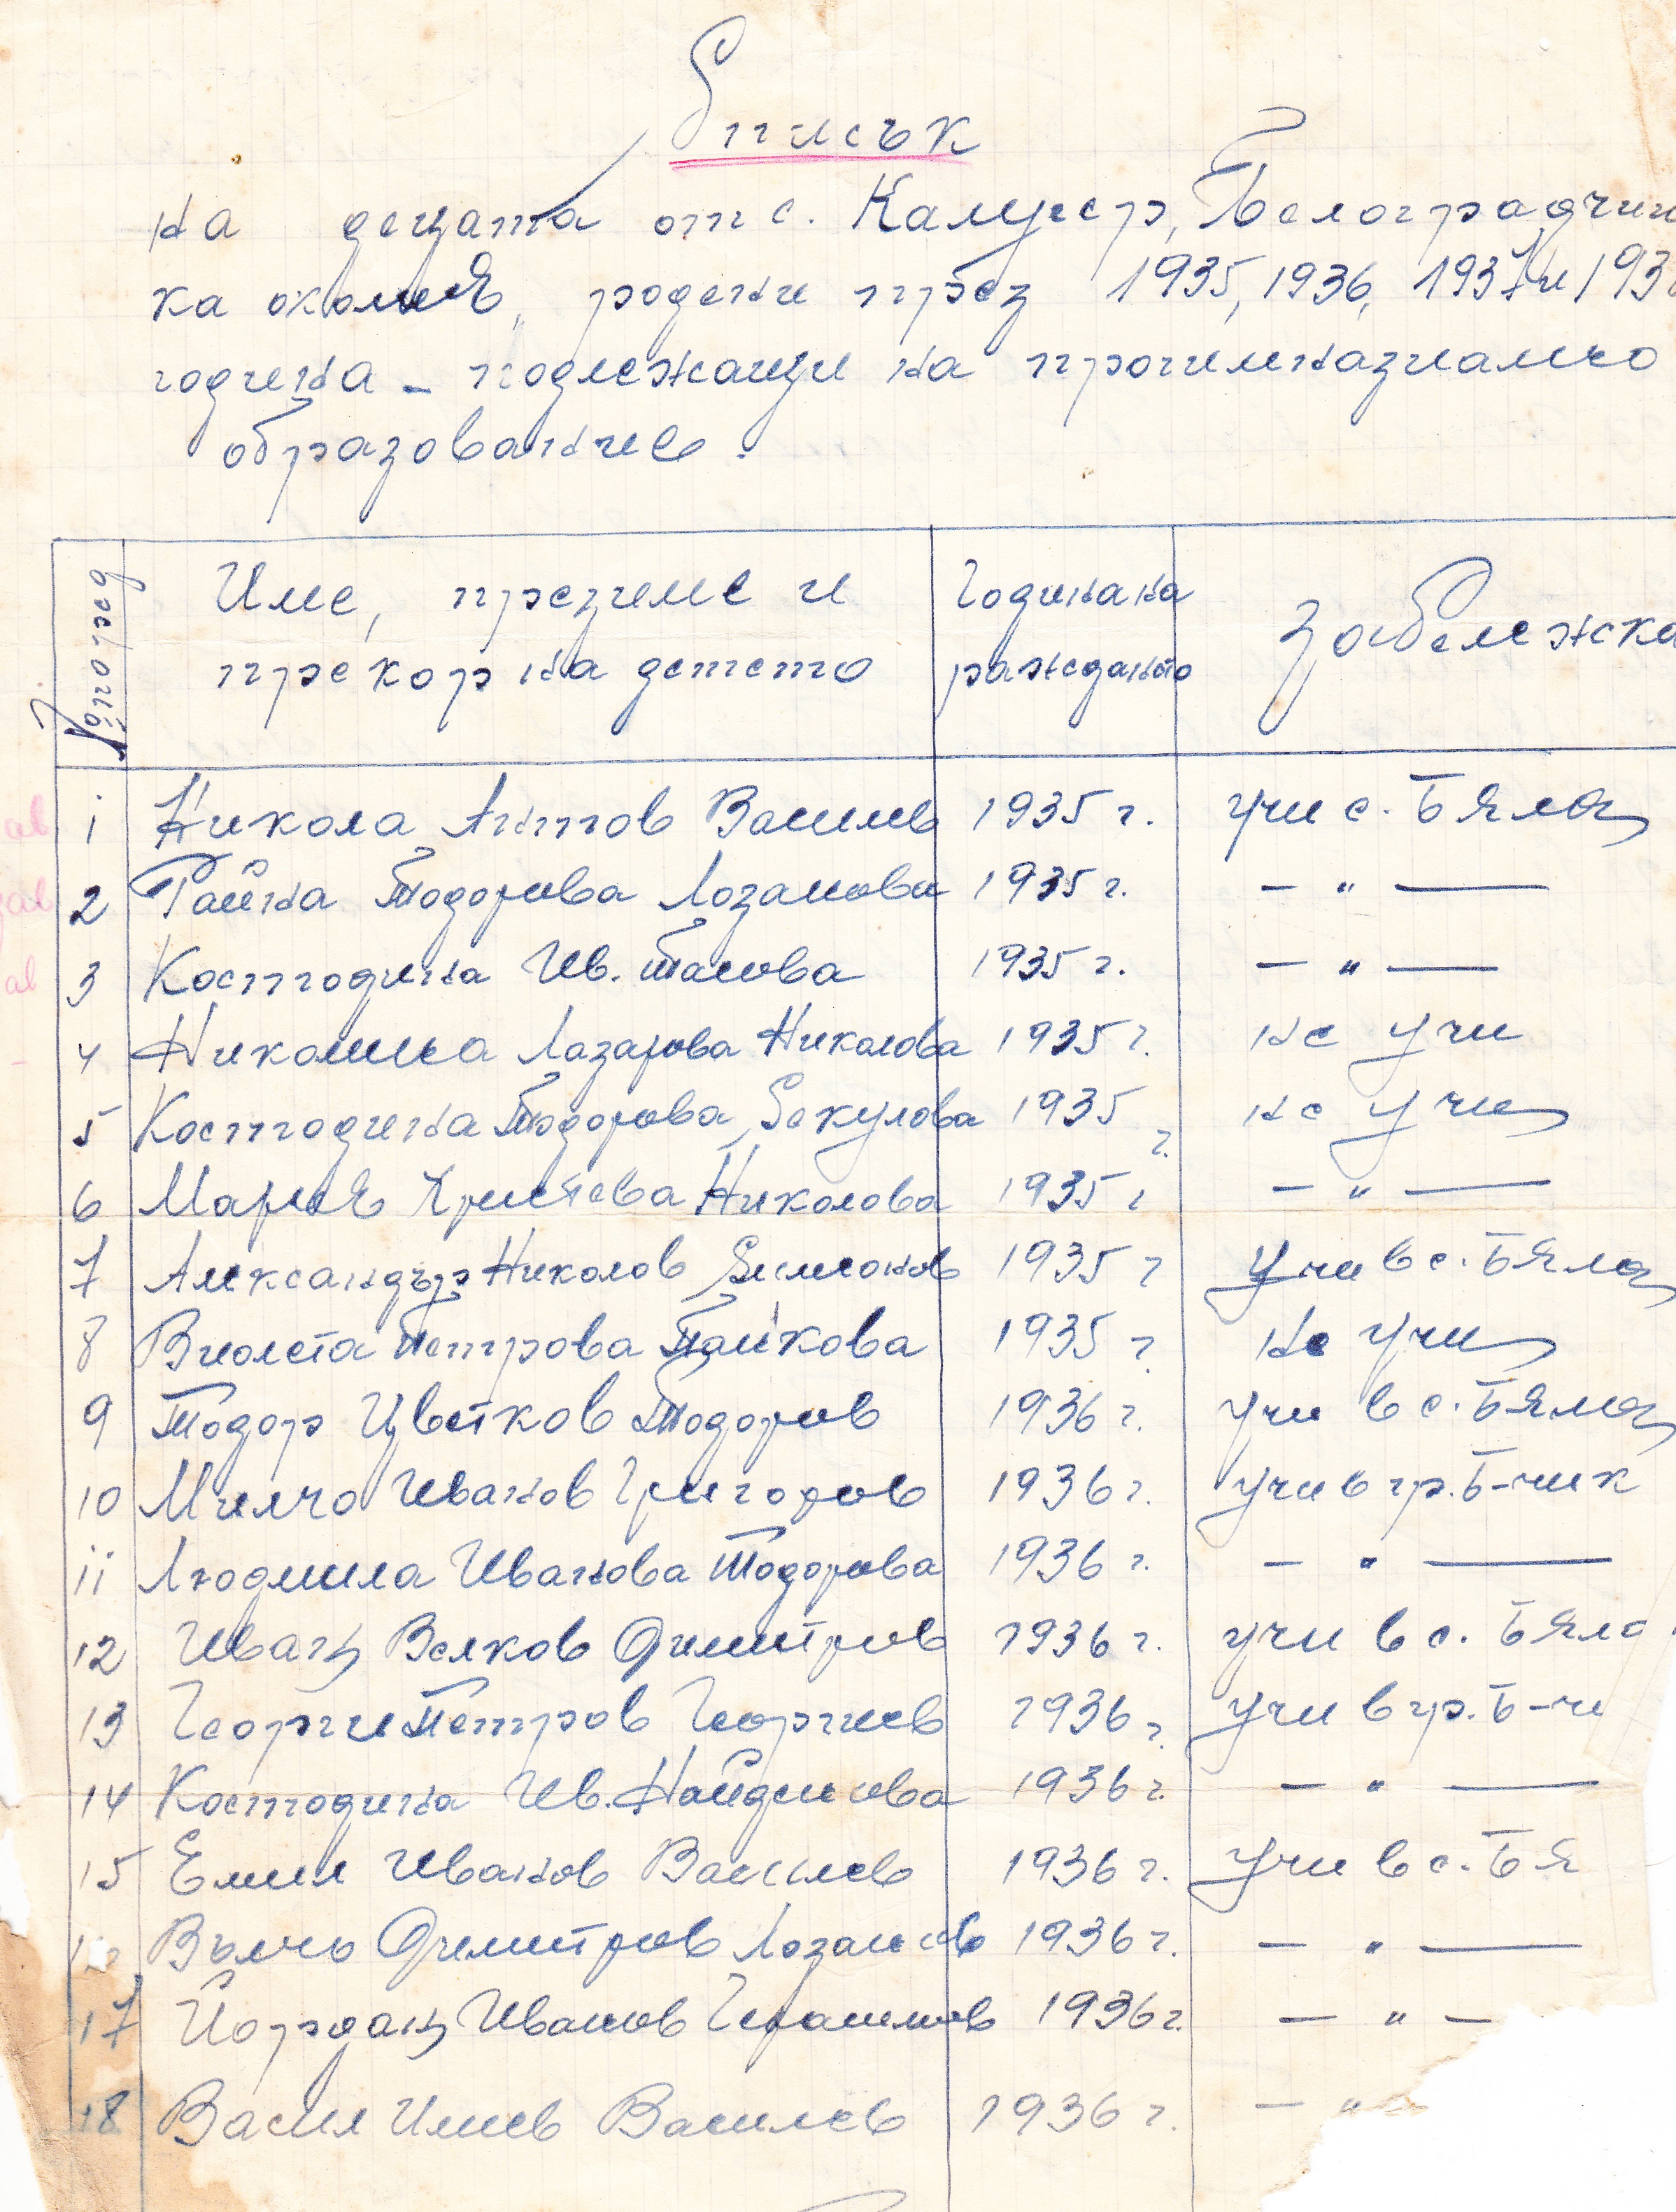 Списък
на децата от с. Калугер, Белоградчиш
ка околия, родени през 1935, 1936, 1937 и 193
година – подлежащи на прогимназиално
образование.
№ по ред
Име, презиме и
прекор на детето
Година на
раждането
Забележка
1 Никола Антов Василев 1935 г. учи с. Бяла
2 Райна Тодорова Лозанова 1935 г. – " –
3 Костодина Ив. Танова 1935 г. – " –
4 Николина Лазарова Николова 1935 г. не учи
5 Костодина Тодорова Секулова 1935 г. не учи
6 Мария Христева Николова 1935 г – " –
7 Александър Николов Симеонов 1935 г учи в с. Бяла
8 Виолета Петрова Панкова 1935 г. не учи
9 Тодор Цветков Тодоров 1936 г. учи в с. Бяла
10 Милчо Иванов Григоров 1936 г. учи в гр. Б-чик
11 Людмила Иванова Тодорова 1936 г. – " –
12 Иван Велков Димитров 1936 г. учи в с. Бяла
13 Георги Петров Георгиев 1936 г. учи в гр. Б-чи
14 Костодина Ив. Найденова 1936 г. – " –
15 Емил Иванов Василев 1936 г. учи в с. Бя
Вълчо Димитров Лозанов 1936 г. – " –
17 Йордан Иванов Герасимов 1936 г. – " –
18 Васил Илиев Василев 1936 г. – "